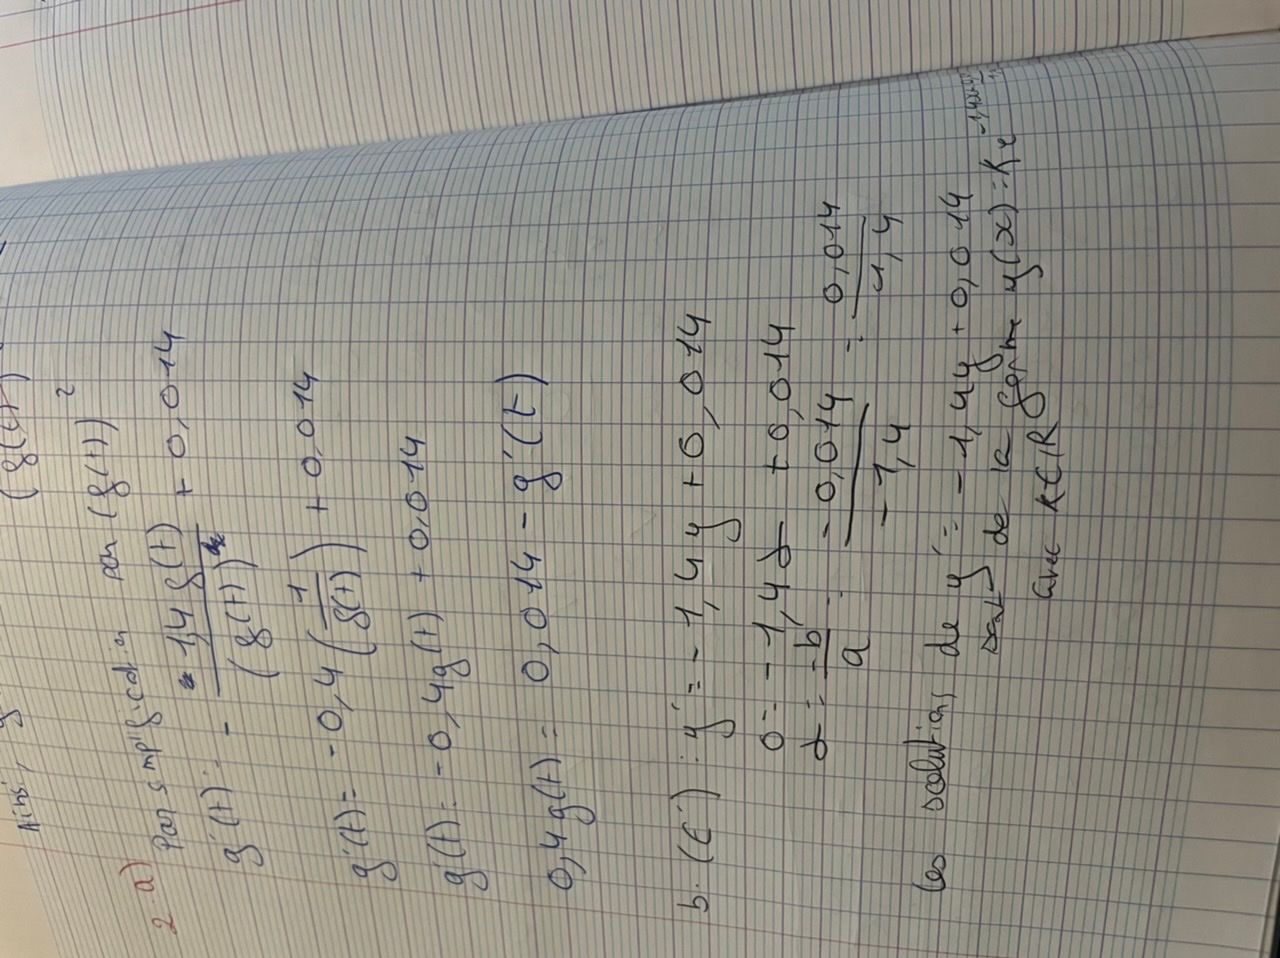 (g(t))
Ainsi,
2.a) Par simplification par (g(t))²
g'(t) = - 1,4 g(t) / (g(t))² + 0,014
g'(t) = -0,4 (1/g(t)) + 0,014
g'(t) = -0,4g(t) + 0,014
0,4g(t) = 0,014 - g'(t)
b. (E') : y' = -1,4y + 0,014
0 = -1,4γ + 0,014
γ = -b/a = -0,014/-1,4 = 0,014/1,4
les solutions de y' = -1,4y + 0,014
sont de la forme y(x) = Ke
avec K∈ℝ